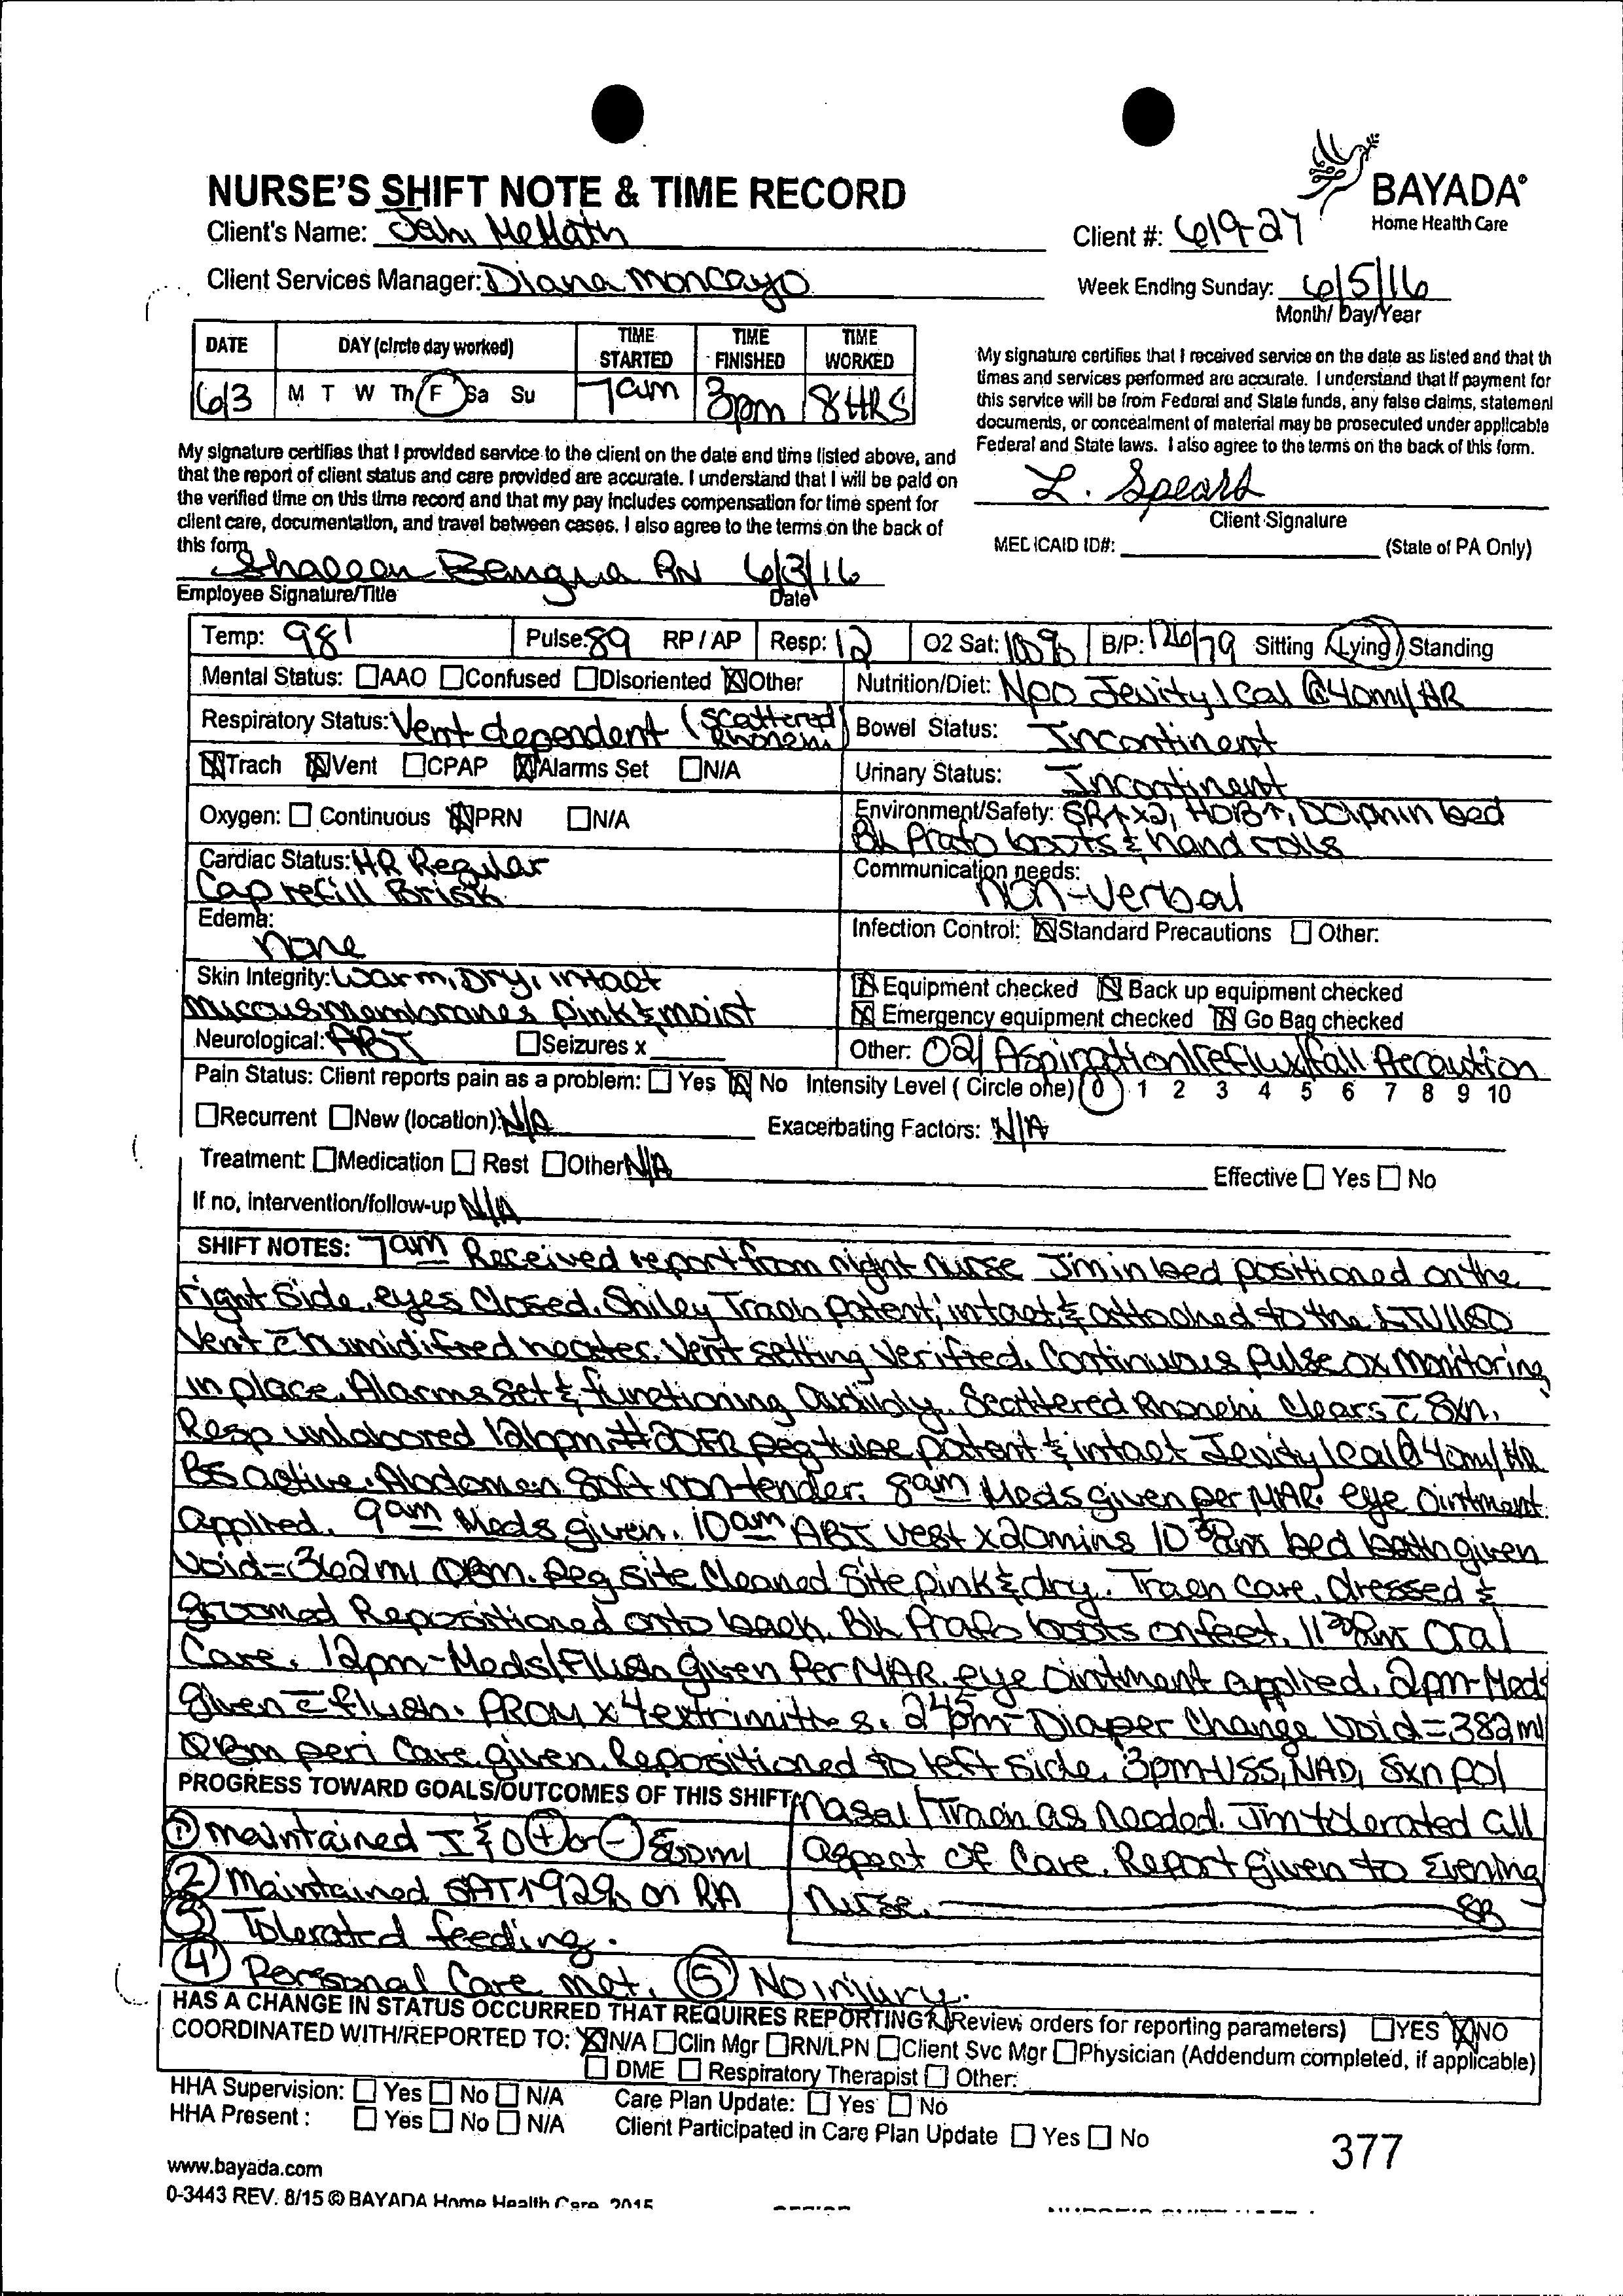 NURSE'S SHIFT NOTE & TIME RECORD
BAYADA
Home Health Care
Client's Name: Jahi McMath
Client #: 619-27
Client Services Manager: Diana Moncayo
Week Ending Sunday: 6/5/16
Month/ Day/Year
DATE DAY (circle day worked) TIME STARTED TIME FINISHED TIME WORKED
6/3 M T W Th F Sa Su 7am 3pm 8 HRS
My signature certifies that I received service on the date as listed and that th
times and services performed are accurate. I understand that if payment for
this service will be from Federal and State funds, any false claims, statement
documents, or concealment of material may be prosecuted under applicable
Federal and State laws. I also agree to the terms on the back of this form.
My signature certifies that I provided service to the client on the date and time listed above, and
that the report of client status and care provided are accurate. I understand that I will be paid on
the verified time on this time record and that my pay includes compensation for time spent for
client care, documentation, and travel between cases. I also agree to the terms on the back of
this form.
L. Spears
Client Signature
MEDICAID ID#: (State of PA Only)
RN 6/3/16
Employee Signature/Title Date
Temp: 981 Pulse: 89 RP / AP Resp: 12 O2 Sat: 100% B/P: 126/79 Sitting Lying Standing
Mental Status: AAO Confused Disoriented Other
Nutrition/Diet: NPO Jevity 1 Cal @ 40ml/HR
Respiratory Status: Vent dependent (Scattered Rhonchi)
Bowel Status: Incontinent
Trach Vent CPAP Alarms Set N/A
Urinary Status: Incontinent
Oxygen: Continuous PRN N/A
Environment/Safety: SR↑x2, HOB↑, Dolphin bed
BL Prafo boots & hand rolls
Cardiac Status: HR Regular
Cap refill Brisk
Communication needs:
Non-Verbal
Edema:
None
Infection Control: Standard Precautions Other:
Skin Integrity: Warm, Dry, intact
Mucous membranes pink & moist
Equipment checked Back up equipment checked
Emergency equipment checked Go Bag checked
Neurological: ABI Seizures x
Other: O2/Aspiration/reflux/fall Precaution
Pain Status: Client reports pain as a problem: Yes No Intensity Level ( Circle one) 0 1 2 3 4 5 6 7 8 9 10
Recurrent New (location): N/A Exacerbating Factors: N/A
Treatment: Medication Rest Other N/A Effective Yes No
If no, intervention/follow-up N/A
SHIFT NOTES: 7am Received report from night nurse Jm in bed positioned on the
right Side, eyes Closed. Shiley Trach patent, intact, & attached to the LTV1150
Vent c̄ humidifred heater. Vent setting Verified. Continuous pulse ox monitoring
in place. Alarms set & functioning audibly. Scattered Rhonchi Clears c̄ Sxn.
Resp unlabored 12bpm. #20FR peg tube patent & intact Jevity 1 Cal @ 40ml/HR
BS active. Abdomen Soft non tender. 8am Meds given per MAR. eye Ointment
applied. 9am Meds given. 10am ABI Vest x 20mins 10 30am bed bath given
Void=362ml 0BM. Peg site Cleaned Site pink & dry. Trach Care, dressed &
groomed Repositioned onto back. BL Prafo boots on feet. 11 30am Oral
Care. 12pm-Meds/Flush given Per MAR. eye Ointment applied. 2pm-Meds
given c̄ flush. PROM x 4 extrimittes. 2 45pm-Diaper Change Void=382ml
0Bm peri Care given. Repositioned to left Side. 3pm-VSS, NAD, Sxn po/
PROGRESS TOWARD GOALS/OUTCOMES OF THIS SHIFT:
Nasal/Trach as Needed. Jm tolerated all
aspect of Care. Report given to Evening
Nurse. SB
① maintained I & O (+) or (-) 500ml
② Maintained SAT↑92% on RA
③ Tolerated feeding.
④ Personal Care met. ⑤ No injury.
HAS A CHANGE IN STATUS OCCURRED THAT REQUIRES REPORTING? (Review orders for reporting parameters) YES NO
COORDINATED WITH/REPORTED TO: N/A Clin Mgr RN/LPN Client Svc Mgr Physician (Addendum completed, if applicable)
DME Respiratory Therapist Other:
HHA Supervision: Yes No N/A Care Plan Update: Yes No
HHA Present : Yes No N/A Client Participated in Care Plan Update Yes No
377
www.bayada.com
0-3443 REV. 8/15 © BAYADA Home Health Care, 2015